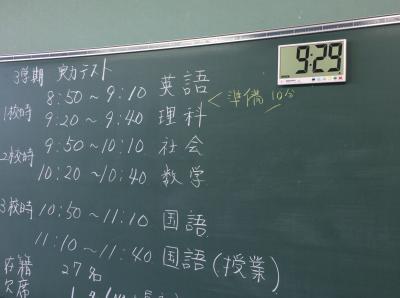 3学期 実力テスト
8:50～9:10 英語
1校時 9:20～9:40 理科
準備10分
9:50～10:10 社会
2校時 10:20～10:40 数学
3校時 10:50～11:10 国語
11:10～11:40 国語(授業)
在籍 27名
欠席
9:29